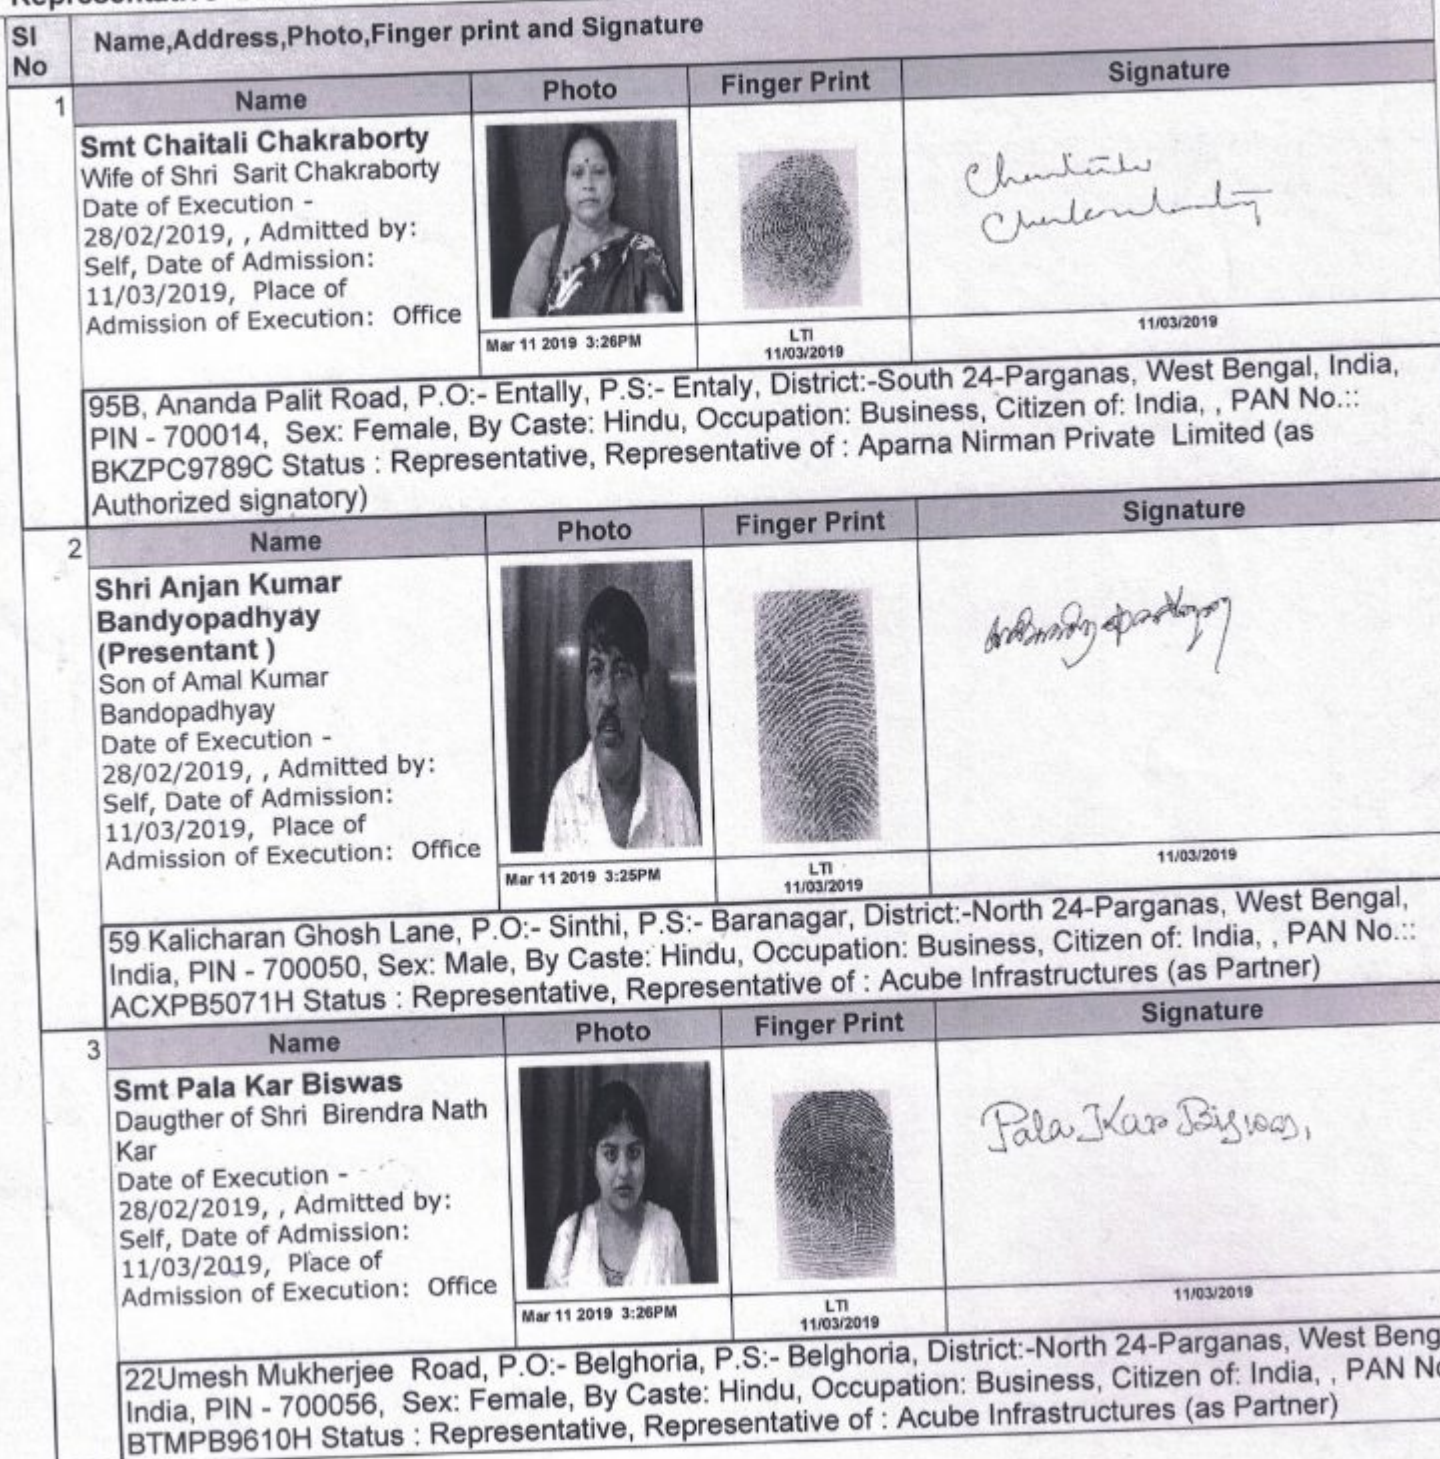 Sl
No
Name,Address,Photo,Finger print and Signature
1
Name
Photo
Finger Print
Signature
Smt Chaitali Chakraborty
Wife of Shri Sarit Chakraborty
Date of Execution -
28/02/2019, , Admitted by:
Self, Date of Admission:
11/03/2019, Place of
Admission of Execution: Office
Mar 11 2019 3:26PM
LTI
11/03/2019
11/03/2019
95B, Ananda Palit Road, P.O:- Entally, P.S:- Entaly, District:-South 24-Parganas, West Bengal, India,
PIN - 700014, Sex: Female, By Caste: Hindu, Occupation: Business, Citizen of: India, , PAN No.::
BKZPC9789C Status : Representative, Representative of : Aparna Nirman Private Limited (as
Authorized signatory)
2
Name
Photo
Finger Print
Signature
Shri Anjan Kumar
Bandyopadhyay
(Presentant )
Son of Amal Kumar
Bandopadhyay
Date of Execution -
28/02/2019, , Admitted by:
Self, Date of Admission:
11/03/2019, Place of
Admission of Execution: Office
Mar 11 2019 3:25PM
LTI
11/03/2019
11/03/2019
59 Kalicharan Ghosh Lane, P.O:- Sinthi, P.S:- Baranagar, District:-North 24-Parganas, West Bengal,
India, PIN - 700050, Sex: Male, By Caste: Hindu, Occupation: Business, Citizen of: India, , PAN No.::
ACXPB5071H Status : Representative, Representative of : Acube Infrastructures (as Partner)
3
Name
Photo
Finger Print
Signature
Smt Pala Kar Biswas
Daugther of Shri Birendra Nath
Kar
Date of Execution -
28/02/2019, , Admitted by:
Self, Date of Admission:
11/03/2019, Place of
Admission of Execution: Office
Pala Kar Biswas,
Mar 11 2019 3:26PM
LTI
11/03/2019
11/03/2019
22Umesh Mukherjee Road, P.O:- Belghoria, P.S:- Belghoria, District:-North 24-Parganas, West Beng
India, PIN - 700056, Sex: Female, By Caste: Hindu, Occupation: Business, Citizen of: India, , PAN No
BTMPB9610H Status : Representative, Representative of : Acube Infrastructures (as Partner)